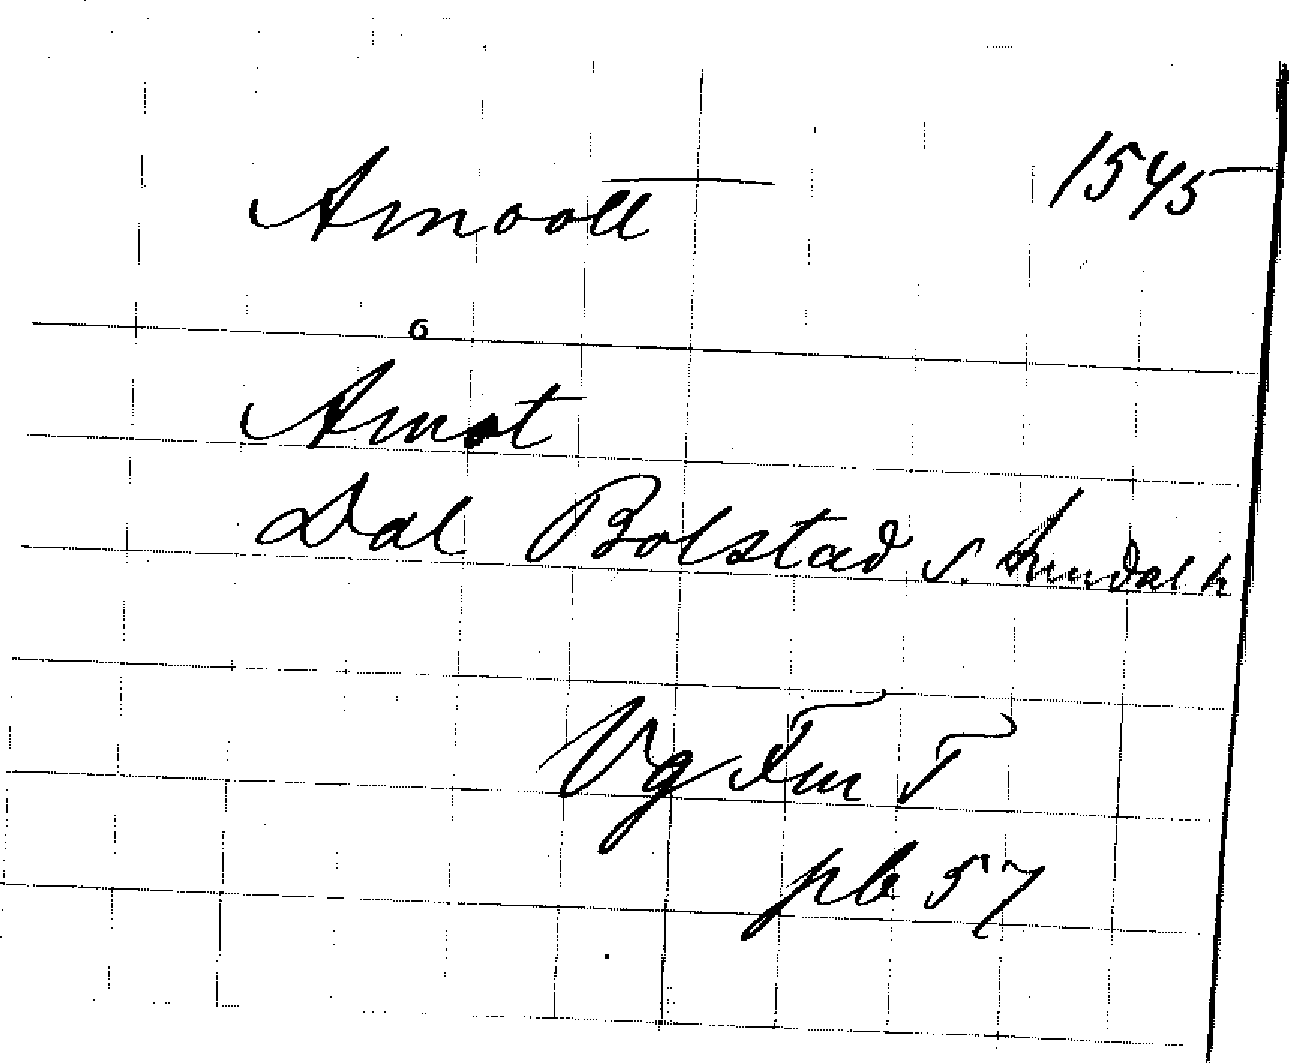 Arnoolt 1545
Arnot
Dal Bolstad s. Sundal h
Vg Fm T
pb 57